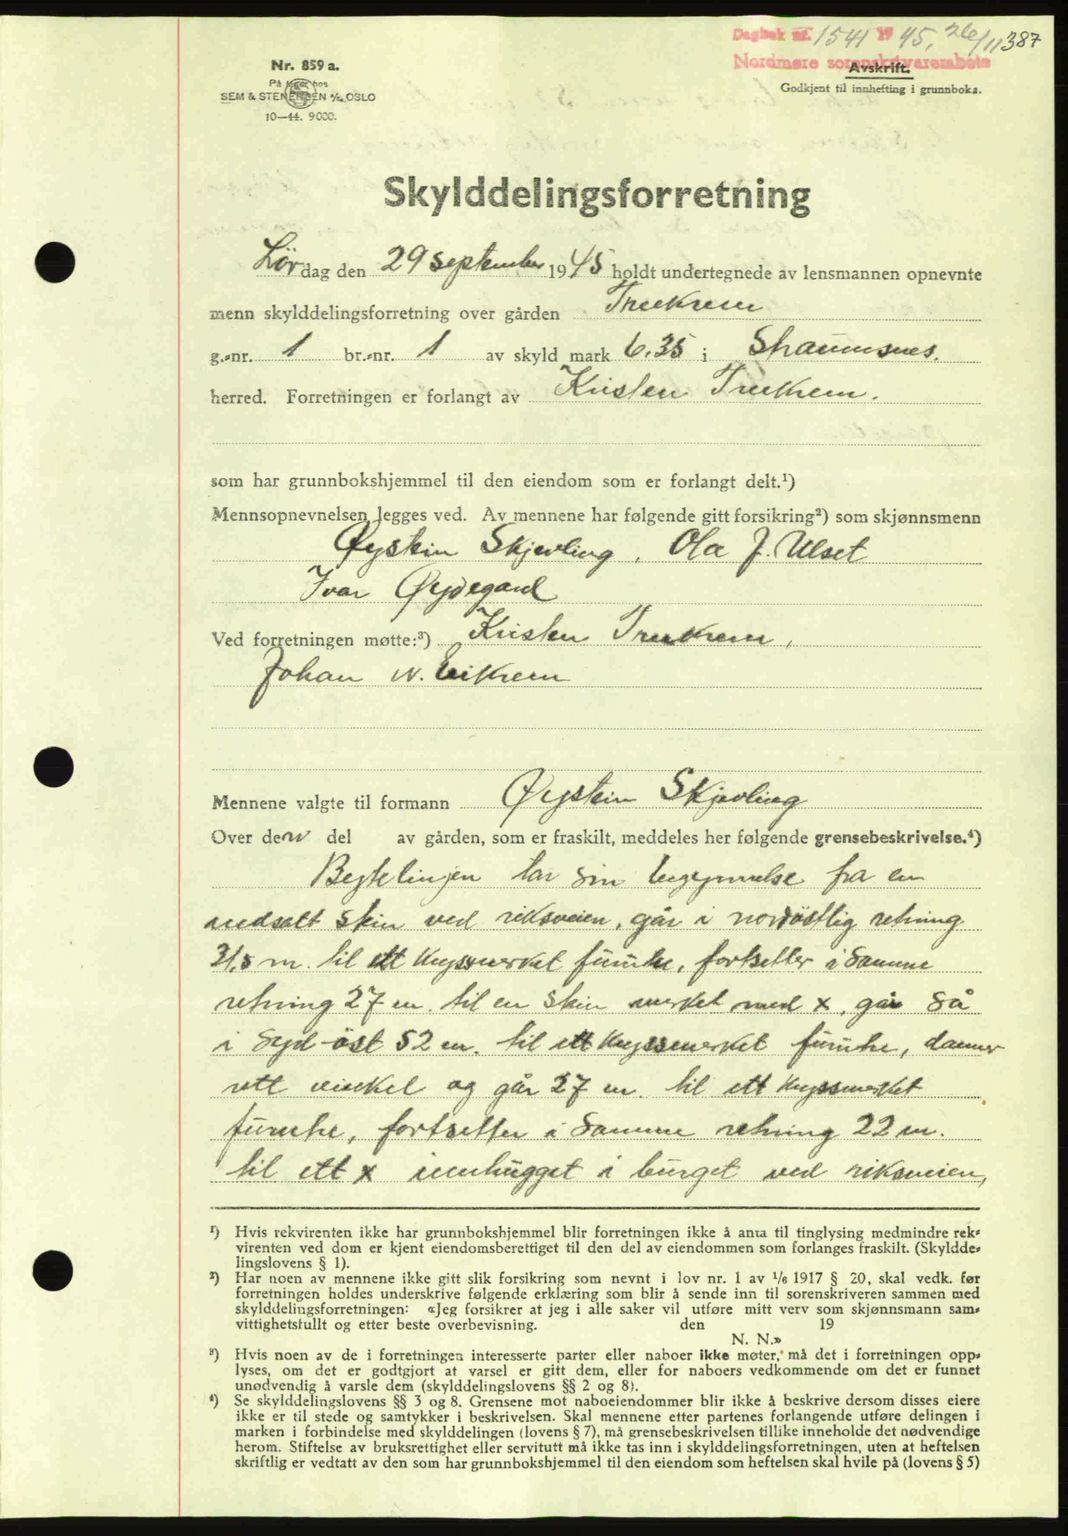 Dagbok nr. 1541 1945, 26/11 387
Nordmøre sorenskriverembete
Nr. 859 a.
På lager hos
SEM & STENERSEN A/S, OSLO
10-44. 9000.
Avskrift.
Godkjent til innhefting i grunnboka.
Skylddelingsforretning
Lørdag den 29 september 1945 holdt undertegnede av lensmannen opnevnte
menn skylddelingsforretning over gården Trækrem
g.-nr. 1 br.-nr. 1 av skyld mark 6.35 i Straumsnes.
herred. Forretningen er forlangt av Kristen Trækrem.
som har grunnbokshjemmel til den eiendom som er forlangt delt.¹)
Mennsopnevnelsen legges ved. Av mennene har følgende gitt forsikring²) som skjønnsmenn
Øystein Skjevling, Ola J. Ulset
Ivar Øydegard
Ved forretningen møtte:³) Kristen Trækrem,
Johan N. Eikrem
Mennene valgte til formann Øystein Skjevling
Over den del av gården, som er fraskilt, meddeles her følgende grensebeskrivelse.⁴)
Begtelinjen tar sin begynnelse fra en
nedsatt stein ved riksveien, går i nordöstlig retning
31,5 m. til ett kryssmerket furutre, fortsetter i samme
retning 27 m. til en stein merket med x, går så
i Syd-öst 52 m. til ett kryssmerket furutre, danner
rett vinkel og går 27 m. til ett kryssmerket
furutre, fortsetter i samme retning 22 m.
til ett x innhugget i berget ved riksveien,
¹) Hvis rekvirenten ikke har grunnbokshjemmel blir forretningen ikke å anta til tinglysing medmindre rek-
virenten ved dom er kjent eiendomsberettiget til den del av eiendommen som forlanges fraskilt. (Skyldde-
lingslovens § 1).
²) Har noen av mennene ikke gitt slik forsikring som nevnt i lov nr. 1 av 1/6 1917 § 20, skal vedk. før
forretningen holdes underskrive følgende erklæring som blir å sende inn til sorenskriveren sammen med
skylddelingsforretningen: «Jeg forsikrer at jeg i alle saker vil utføre mitt verv som skjønnsmann sam-
vittighetsfullt og etter beste overbevisning. den 19
N. N.»
³) Hvis noen av de i forretningen interesserte parter eller naboer ikke møter, må det i forretningen opp-
lyses, om det er godtgjort at varsel er gitt dem, eller for naboers vedkommende om det er funnet
unødvendig å varsle dem (skylddelingslovens §§ 2 og 8).
⁴) Se skylddelingslovens §§ 3 og 8. Grensene mot naboeiendommer blir ikke å beskrive dersom disses eiere
ikke er til stede og samtykker i beskrivelsen. Skal mennene etter partenes forlangende utføre delingen i
marken i forbindelse med skylddelingen (lovens § 7), må grensebeskrivelsen tillike inneholde det nødvendige
herom. Stiftelse av bruksrettighet eller servitutt må ikke tas inn i skylddelingsforretningen, uten at heftelsen
skriftlig er vedtatt av den som har grunnbokshjemmel til den eiendom som heftelsen skal hvile på (lovens § 5)